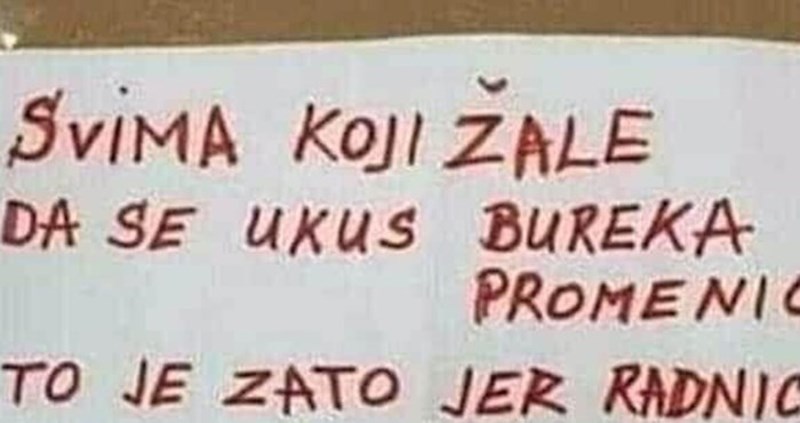 SViMA KOJI ŽALE
DA SE UKUS BUREKA
PROMENIO
TO JE ZATO JER RADNIC